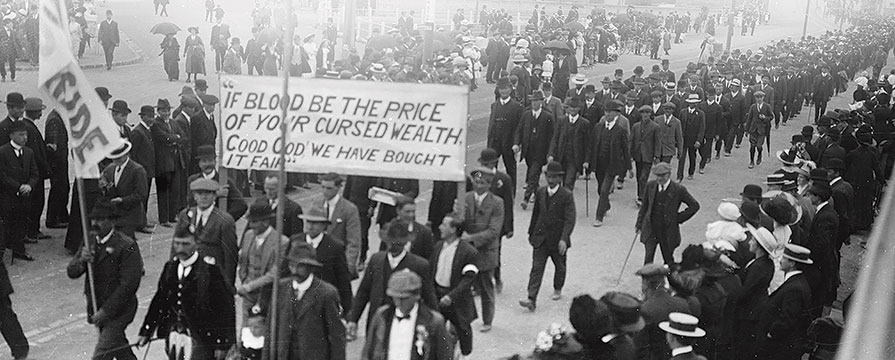 RIDE
"IF BLOOD BE THE PRICE
OF YOUR CURSED WEALTH,
GOOD GOD WE HAVE BOUGHT
IT FAIR"